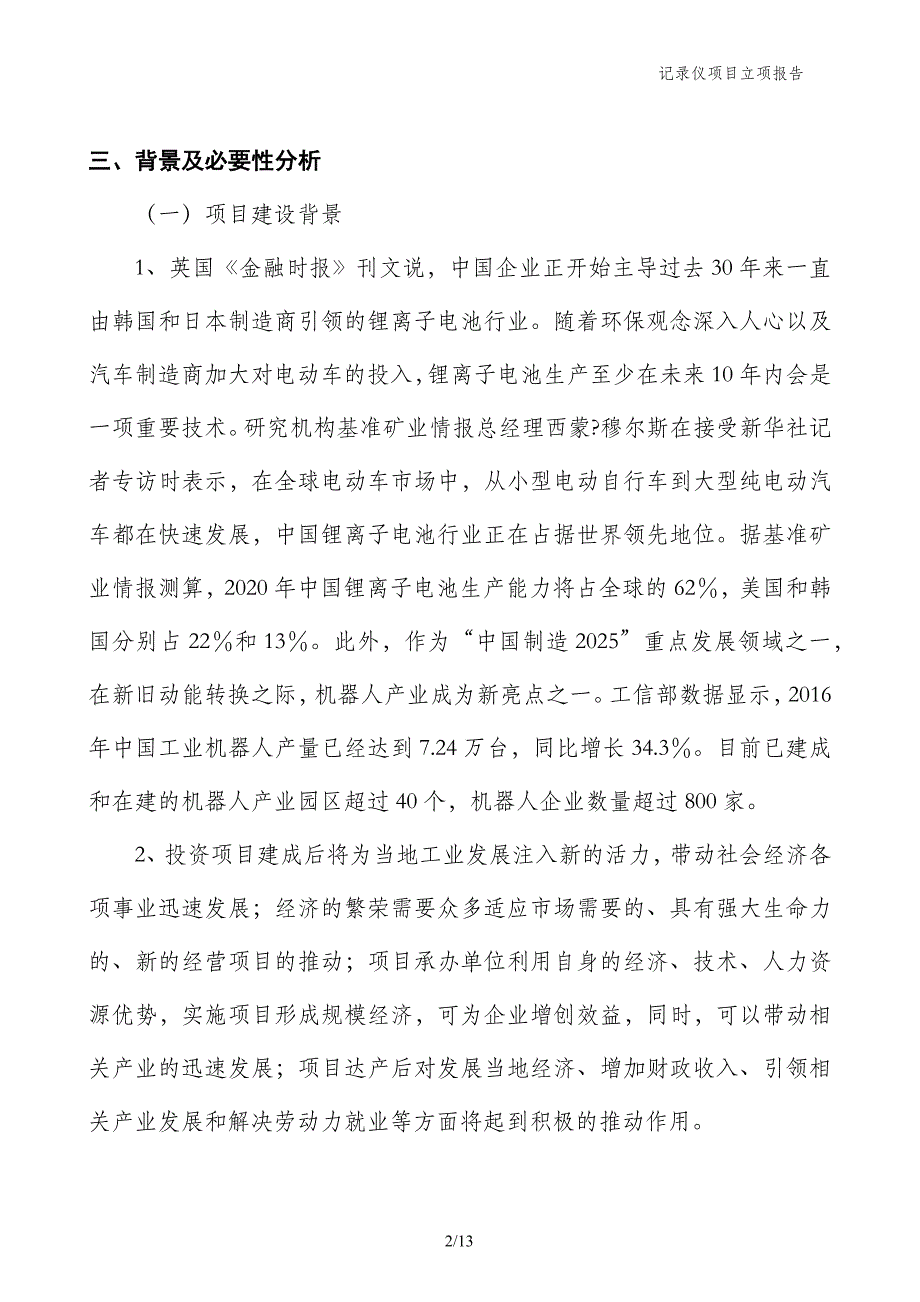 记录仪项目立项报告
三、背景及必要性分析
（一）项目建设背景
1、英国《金融时报》刊文说，中国企业正开始主导过去 30 年来一直
由韩国和日本制造商引领的锂离子电池行业。随着环保观念深入人心以及
汽车制造商加大对电动车的投入，锂离子电池生产至少在未来 10 年内会是
一项重要技术。研究机构基准矿业情报总经理西蒙?穆尔斯在接受新华社记
者专访时表示，在全球电动车市场中，从小型电动自行车到大型纯电动汽
车都在快速发展，中国锂离子电池行业正在占据世界领先地位。据基准矿
业情报测算，2020 年中国锂离子电池生产能力将占全球的 62%，美国和韩
国分别占 22%和 13%。此外，作为“中国制造 2025”重点发展领域之一，
在新旧动能转换之际，机器人产业成为新亮点之一。工信部数据显示，2016
年中国工业机器人产量已经达到 7.24 万台，同比增长 34.3%。目前已建成
和在建的机器人产业园区超过 40 个，机器人企业数量超过 800 家。
2、投资项目建成后将为当地工业发展注入新的活力，带动社会经济各
项事业迅速发展；经济的繁荣需要众多适应市场需要的、具有强大生命力
的、新的经营项目的推动；项目承办单位利用自身的经济、技术、人力资
源优势，实施项目形成规模经济，可为企业增创效益，同时，可以带动相
关产业的迅速发展；项目达产后对发展当地经济、增加财政收入、引领相
关产业发展和解决劳动力就业等方面将起到积极的推动作用。
2/13